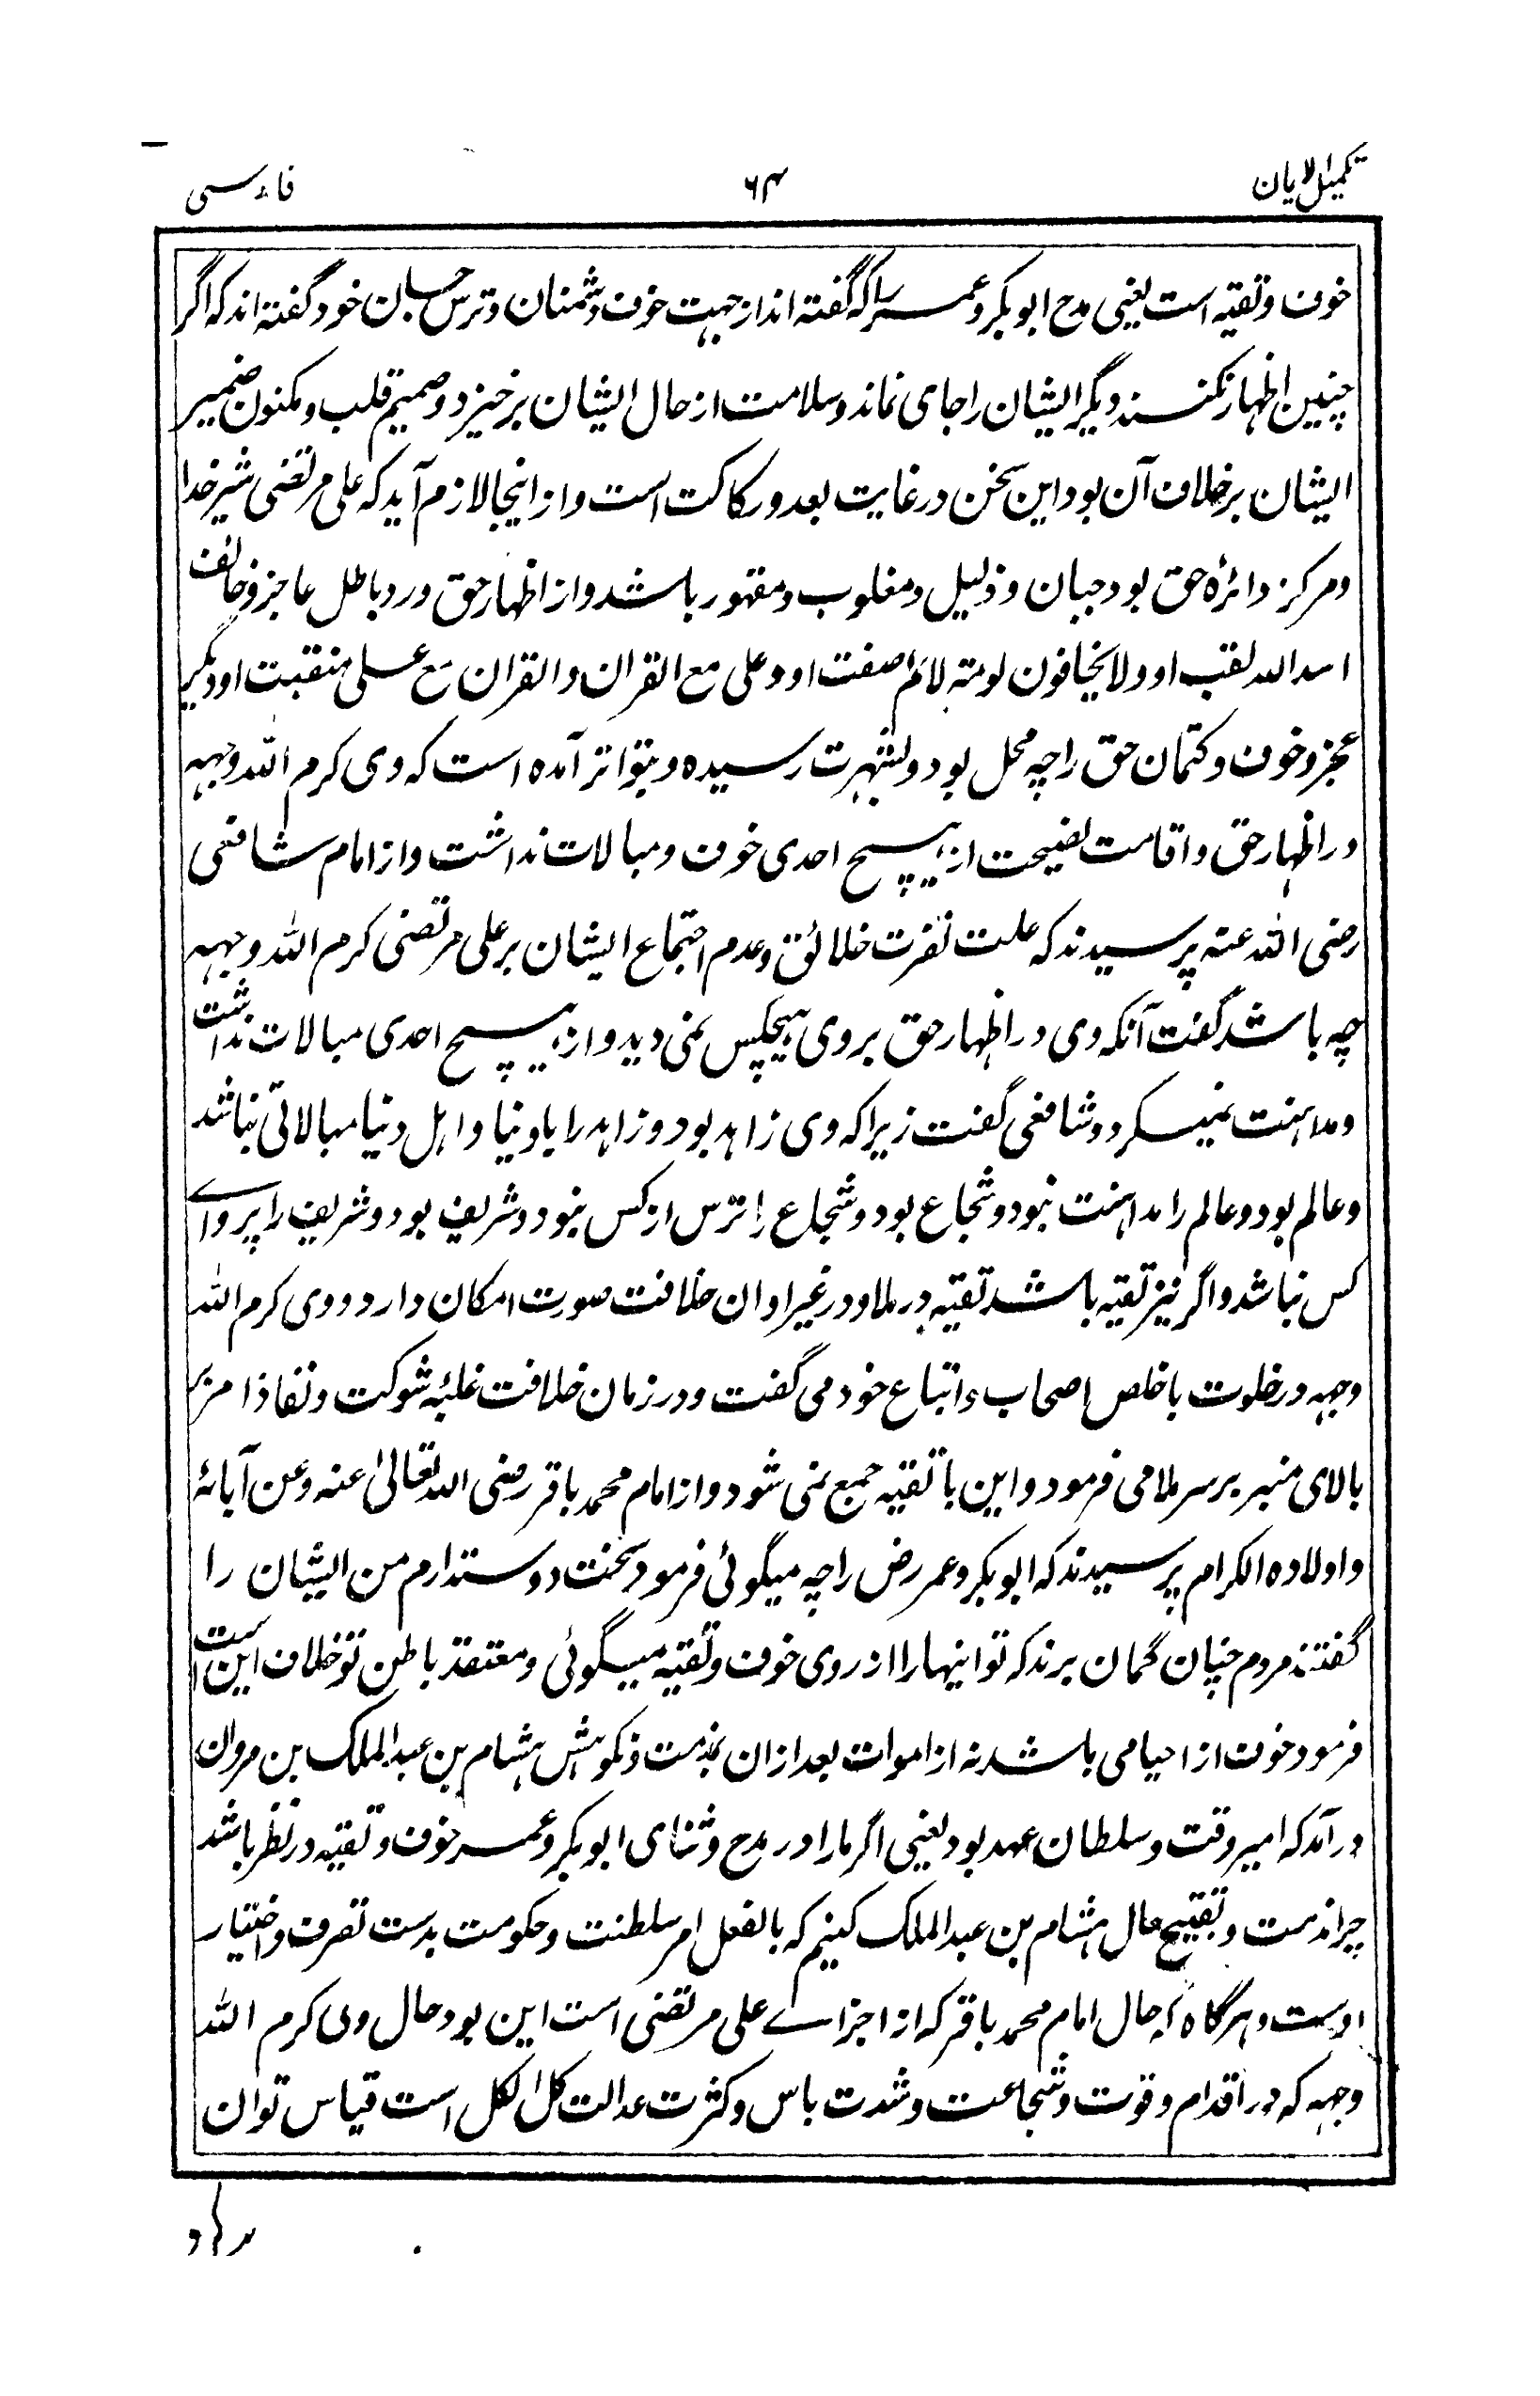 تکمیل الایمان ۶۴ فارسی
خوف و تقیه است یعنی مدح ابوبکر و عمر را که گفته اند از جهت خوف دشمنان و ترس جان خود گفته اند که اگر
چنین اظهار نکنند دیگر ایشان را جای نماند و سلامت از حال ایشان برخیزد و صمیم قلب و مکنون ضمیر
ایشان برخلاف آن بود این سخن در غایت بعد و رکاکت است و از اینجا لازم آید که علی مرتضی شیر خدا
و مرکز دائرهٔ حق بود جبان و ذلیل و مغلوب و مقهور باشد و از اظهار حق و رد باطل عاجز و خائف
اسد الله لقب او و لا یخافون لومة لائم صفت او و علی مع القران و القران مع علی منقبت او دیگر
عجز و خوف و کتمان حق را چه محل بود و بشهرت رسیده و بتواتر آمده است که وی کرم الله وجهه
در اظهار حق و اقامت نصیحت از هیچ احدی خوف و مبالات نداشت و از امام شافعی
رضی الله عنه پرسیدند که علت نفرت خلائق و عدم اجتماع ایشان بر علی مرتضی کرم الله وجهه
چه باشد گفت آنکه وی در اظهار حق بروی هیچکس نمی دید و از هیچ احدی مبالات نداشت
و مداهنت نمیکرد و شافعی گفت زیرا که وی زاهد بود و زاهد را با دنیا و اهل دنیا مبالاتی نباشد
و عالم بود و عالم را مداهنت نبود و شجاع بود و شجاع را ترس از کس نبود و شریف بود و شریف را پروای
کس نباشد و اگر نیز تقیه باشد تقیه در ملا و در غیر اوان خلافت صورت امکان دارد و وی کرم الله
وجهه در خلوت با خلص اصحاب و اتباع خود می گفت و در زمان خلافت غلبهٔ شوکت و نفاذ امر بر
بالای منبر بر سر ملا می فرمود و این با تقیه جمع نمی شود و از امام محمد باقر رضی الله تعالیٰ عنه و عن آبائهٔ
و اولاده الکرام پرسیدند که ابوبکر و عمر رض را چه میگوئی فرمود سخت دوستدارم من ایشان را
گفتند مردم چنان گمان برند که تو اینها را از روی خوف و تقیه میگوئی و معتقد باطن تو خلاف این است
فرمود خوف از احیا می باشد نه از اموات بعد ازان بمذمت و نکوهش هشام بن عبدالملک بن مروان
در آمد که امیر وقت و سلطان عهد بود یعنی اگر ما را در مدح و ثنای ابوبکر و عمر خوف و تقیه در نظر باشد
چرا مذمت و تقبیح حال هشام بن عبدالملک کنیم که بالفعل امر سلطنت و حکومت بدست تصرف و اختیار
اوست و هرگاه که حال امام محمد باقر که از اجزاے علی مرتضی است این بود حال ولی کرم الله
وجهه که در اقدام و قوت و شجاعت و شدت باس و کثرت عدالت کل الکل است قیاس توان